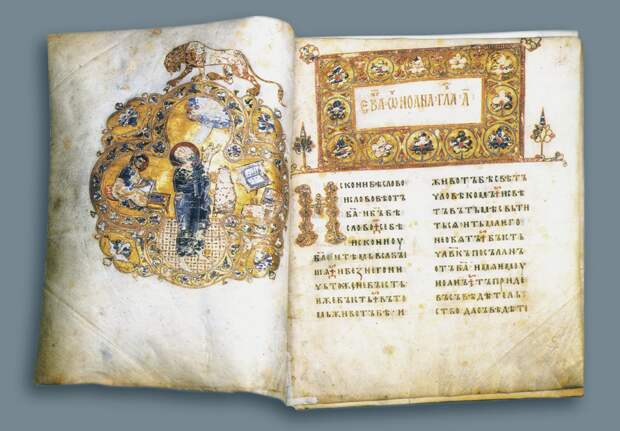 ЕВА·ѠИОАНА·ГЛА·А҃
Искони бѣ слово
и слово бѣ отъ
б҃а и б҃ъ бѣ
слово се бѣ
искони оу
б҃а и тѣмь вьса бы
ша и беж него ни
чьтоже не бысть
ѥже бысть въ то
мь животъ бѣ · и
животъ бѣ свѣтъ
чловѣкомъ и свѣ
тъ въ тьмѣ свьти
тьсѧ и тьма ѥго
не обѧтъ бысть
чл҃вкъ посъланъ
отъ б҃а имѧ ѥмоу
иоанъ тъ приде
въ съвѣдѣтель
ство да съвѣдѣтѣ